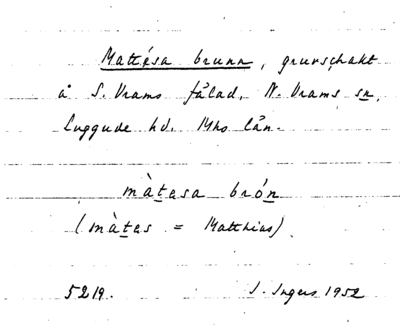 Mattésa brunn, gruvschakt
å S. Vrams fålad, N. Vrams sn,
Luggude hd. Mhs län.
màtasa brón
(màtas = Matthias).
5219. I. Ingers 1952